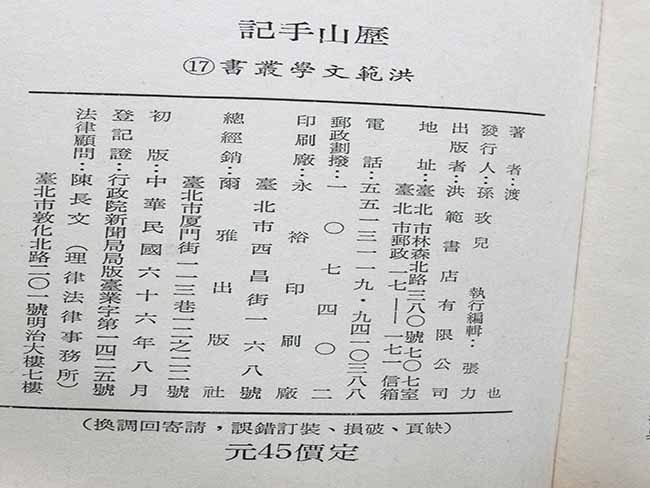 歷山手記
洪範文學叢書⑰
著者：渡也
發行人：孫玫兒　執行編輯：張力
出版者：洪範書店有限公司
地址：臺北市林森北路三八〇號七〇七室
臺北市郵政一七——一七一信箱
電話：五五一三一一九・九四一〇三八八
郵政劃撥：一〇七四〇二
印刷廠：永裕印刷廠
臺北市西昌街一六八號
總經銷：爾雅出版社
臺北市厦門街一一三巷一二之二二號
初版：中華民國六十六年八月
登記證：行政院新聞局局版臺業字第一四二五號
法律顧問：陳長文（理律法律事務所）
臺北市敦化北路二〇一號明治大樓七樓
（缺頁、破損、裝訂錯誤，請寄回調換）
定價45元